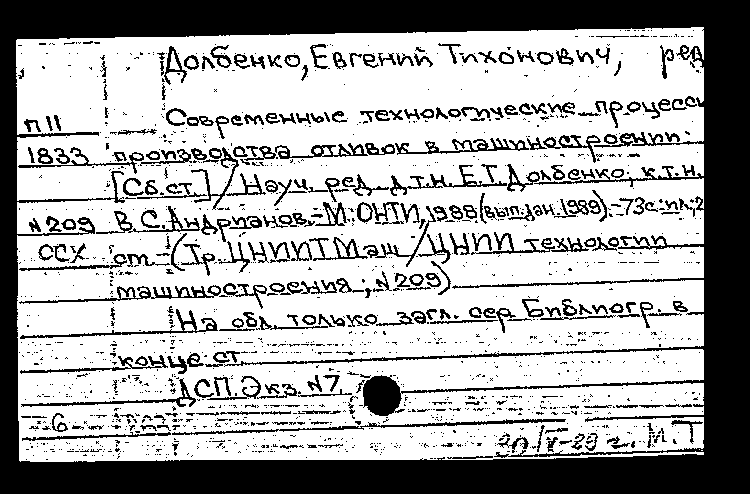 Долбенко, Евгений Тихонович, ред
Современные технологические процессы
П11
1833 производства отливок в машиностроении:
[Сб.ст.] / Науч. ред. д.т.н. Е.Т.Долбенко, к.т.н.
N209 В.С.Андрианов.-М.:ОНТИ,1988(вып.дан.1989).-73с.:ил.;2
ССХ от.-(Тр. ЦНИИТМаш / ЦНИИ технологии
машиностроения; N209)
На обл. только загл. сер. Библиогр. в
конце ст.
ДСП. Экз. N7
6
М.Т.